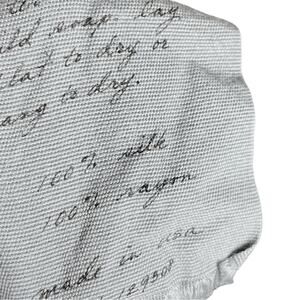 ld soap. Lay
flat to dry or
hang to dry.
100% silk
100% rayon
made in usa
12930